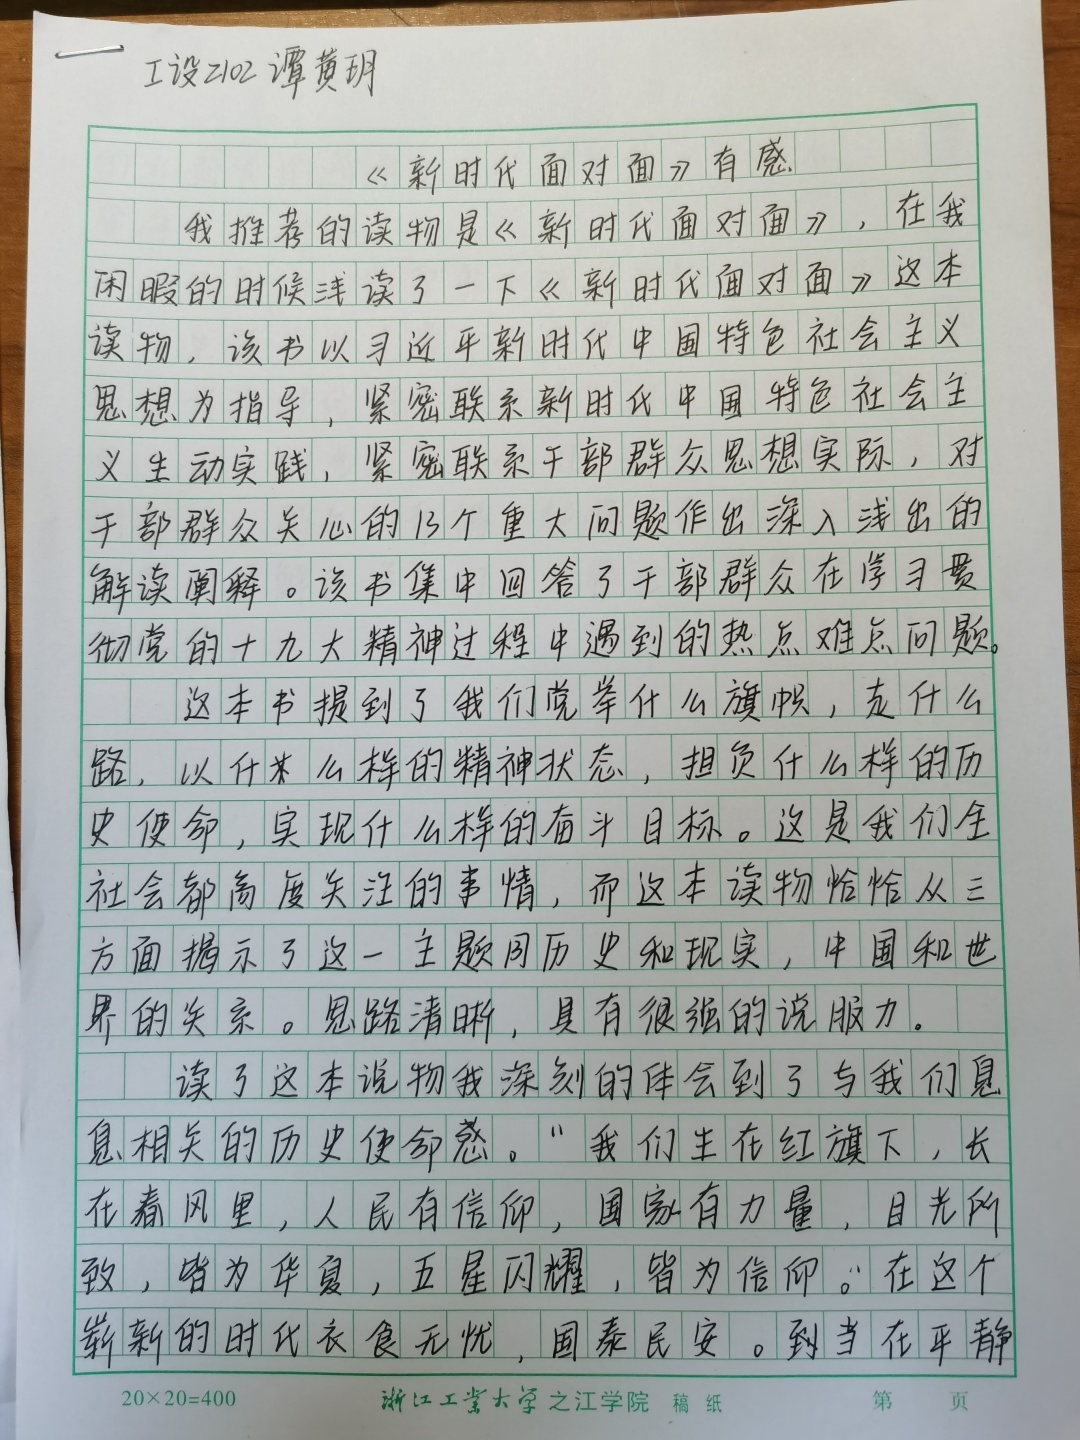 工设2102 谭黄玥
《新时代面对面》有感
我推荐的读物是《新时代面对面》,在我
闲暇的时候浅读了一下《新时代面对面》这本
读物,该书以习近平新时代中国特色社会主义
思想为指导,紧密联系新时代中国特色社会主
义生动实践,紧密联系干部群众思想实际,对
干部群众关心的13个重大问题作出深入浅出的
解读阐释。该书集中回答了干部群众在学习贯
彻党的十九大精神过程中遇到的热点难点问题。
这本书提到了我们党举什么旗帜,走什么
路,以什么样的精神状态,担负什么样的历
史使命,实现什么样的奋斗目标。这是我们全
社会都高度关注的事情,而这本读物恰恰从三
方面揭示了这一主题同历史和现实,中国和世
界的关系。思路清晰,具有很强的说服力。
读了这本说物我深刻的体会到了与我们息
息相关的历史使命感。“我们生在红旗下,长
在春风里,人民有信仰,国家有力量,目光所
致,皆为华夏,五星闪耀,皆为信仰。”在这个
崭新的时代衣食无忧,国泰民安。到当在平静
20×20=400 浙江工业大学之江学院 稿纸 第 页